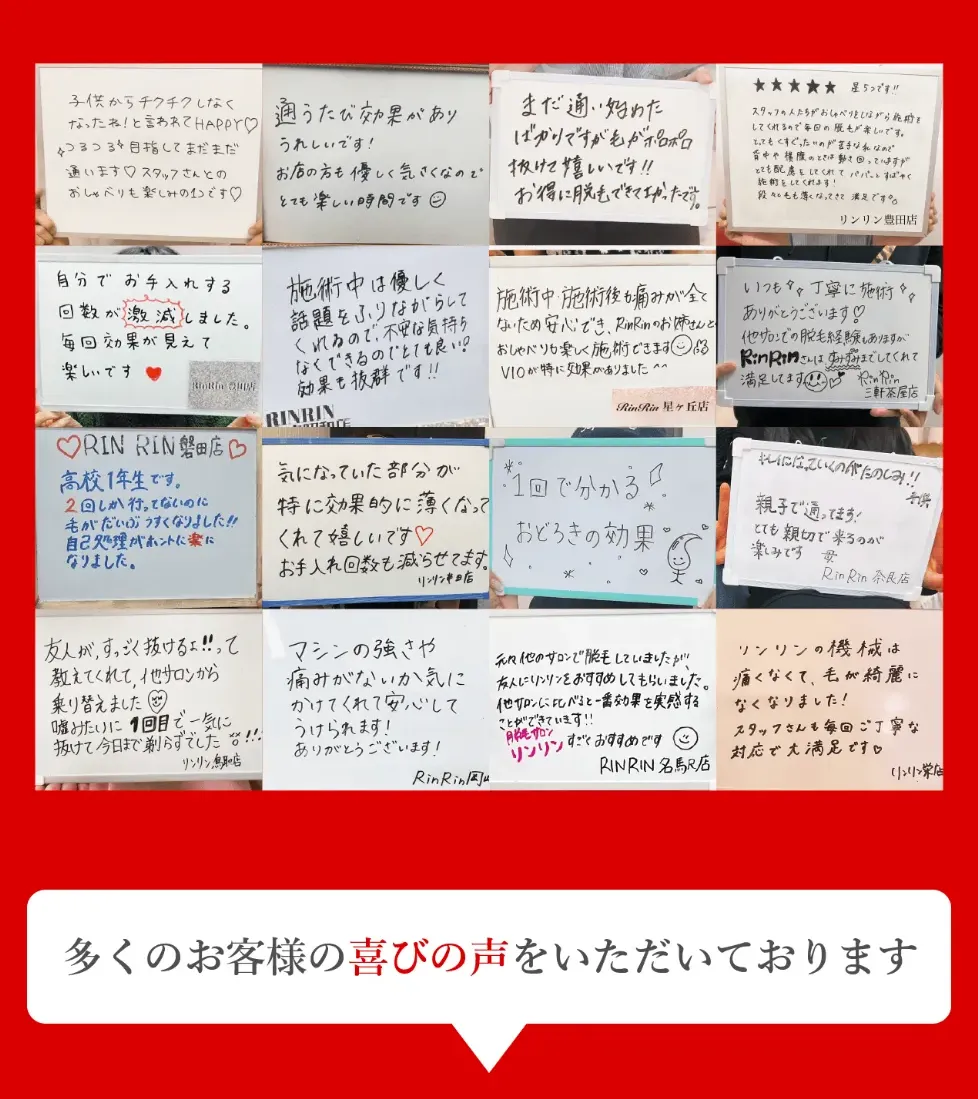 子供からチクチクしなく
なったね!と言われてHAPPY♡
つるつる目指してまだまだ
通います♡スタッフさんとの
おしゃべりも楽しみの1つです♡
通うたび効果があり
うれしいです!
お店の方も優しく気さくなので
とても楽しい時間です
まだ通い始めた
ばかりですが毛がポロポロ
抜けて嬉しいです!!
お得に脱毛できてよかったです。
★★★★★ 星5つです!!
スタッフの人たちがおしゃべりをしながら施術を
してくれるので毎回の脱毛が楽しいです。
とてもくすぐったいのが苦手な私なので
背中や横腹のときは動き回っていますが
とても配慮をしてくれてパパーンとすばやく
施術をしてくれます!
段々毛も薄くなってきて満足です。
リンリン豊田店
自分でお手入れする
回数が激減しました。
毎回効果が見えて
楽しいです♥
RinRin 豊田店
施術中は優しく
話題をふりながらして
くれるので、不安な気持ち
なくできるのでとても良い!
効果も抜群です!!
RINRIN
施術中・施術後も痛みが全て
ないため安心でき、RinRinのお姉さんと
おしゃべりも楽しく施術できます
VIOが特に効果がありました^^
RinRin 星ヶ丘店
いつも丁寧に施術
ありがとうございます♡
他サロンでの脱毛経験もありますが
RinRinさんはすみずみまでしてくれて
満足してます
RinRin
三軒茶屋店
♡RIN RIN磐田店♡
高校1年生です。
2回しか行ってないのに
毛がだいぶうすくなりました!!
自己処理がホントに楽に
なりました。
気になっていた部分が
特に効果的に薄くなって
くれて嬉しいです♡
お手入れ回数も減らせてます。
1回で分かる
おどろきの効果
キレイになっていくのがたのしみ!!
親子で通ってます!
とても親切で来るのが
楽しみです 母
RinRin 奈良店
友人が、すっごく抜けるよ!!って
教えてくれて、他サロンから
乗り替えました
嘘みたいに1回目で一気に
抜けて今日まで剃らずでした!!
リンリン鳥取店
マシンの強さや
痛みがないか気に
かけてくれて安心して
うけられます!
ありがとうございます!
RinRin岡山
元々他のサロンで脱毛していましたが、
友人にリンリンをおすすめしてもらいました。
他サロンに比べると一番効果を実感する
ことができています!!
脱毛サロン
リンリン すごくおすすめです
RINRIN 名馬R店
リンリンの機械は
痛くなくて、毛が綺麗に
なくなりました!
スタッフさんも毎回ご丁寧な
対応で大満足です♡
リンリン栄店
多くのお客様の喜びの声をいただいております